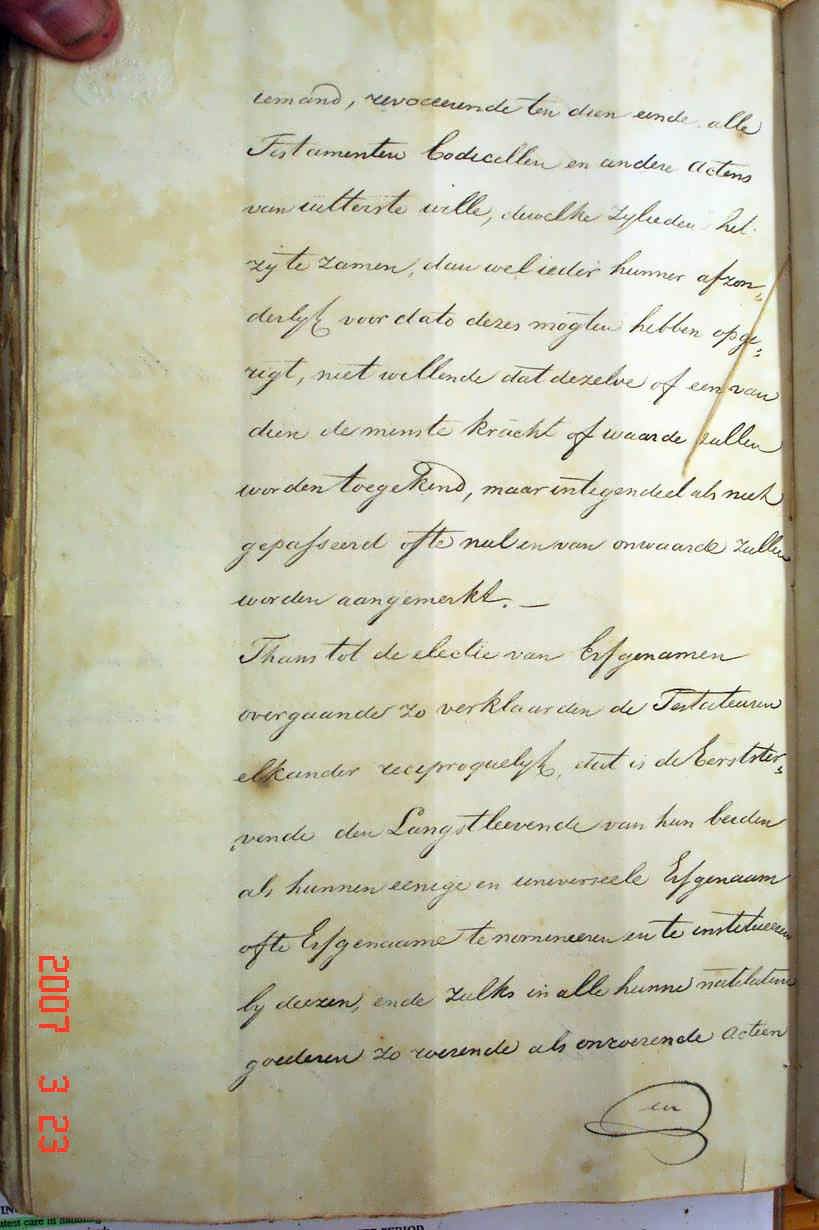 iemand, revoceerende ten dien einde alle
Testamenten Codicellen en andere Actens
van uitterste wille, dewelke zylieden het
zy te zamen, dan wel ieder hunner afzon„
derlyk voor dato dezes mogten hebben opge„
rigt, niet willende dat dezelve of een van
dien de minste kracht of waarde zullen
worden toegekend, maar integendeel als niet
gepasseerd ofte nul en van onwaarde zullen
worden aangemerkt. —
Thans tot de electie van Erfgenamen
overgaande zo verklaarden de Testateuren
elkander reciproquelyk, dat is de Eerstster„
„vende den Langstleevende van hun beiden
als hunnen eenige en universeele Erfgenaam
ofte Erfgenaame te nomineeren en te institueeren
by deezen, ende zulks in alle hunne natelatene
goederen zo roerende als onroerende Actien
en
2007 3 23